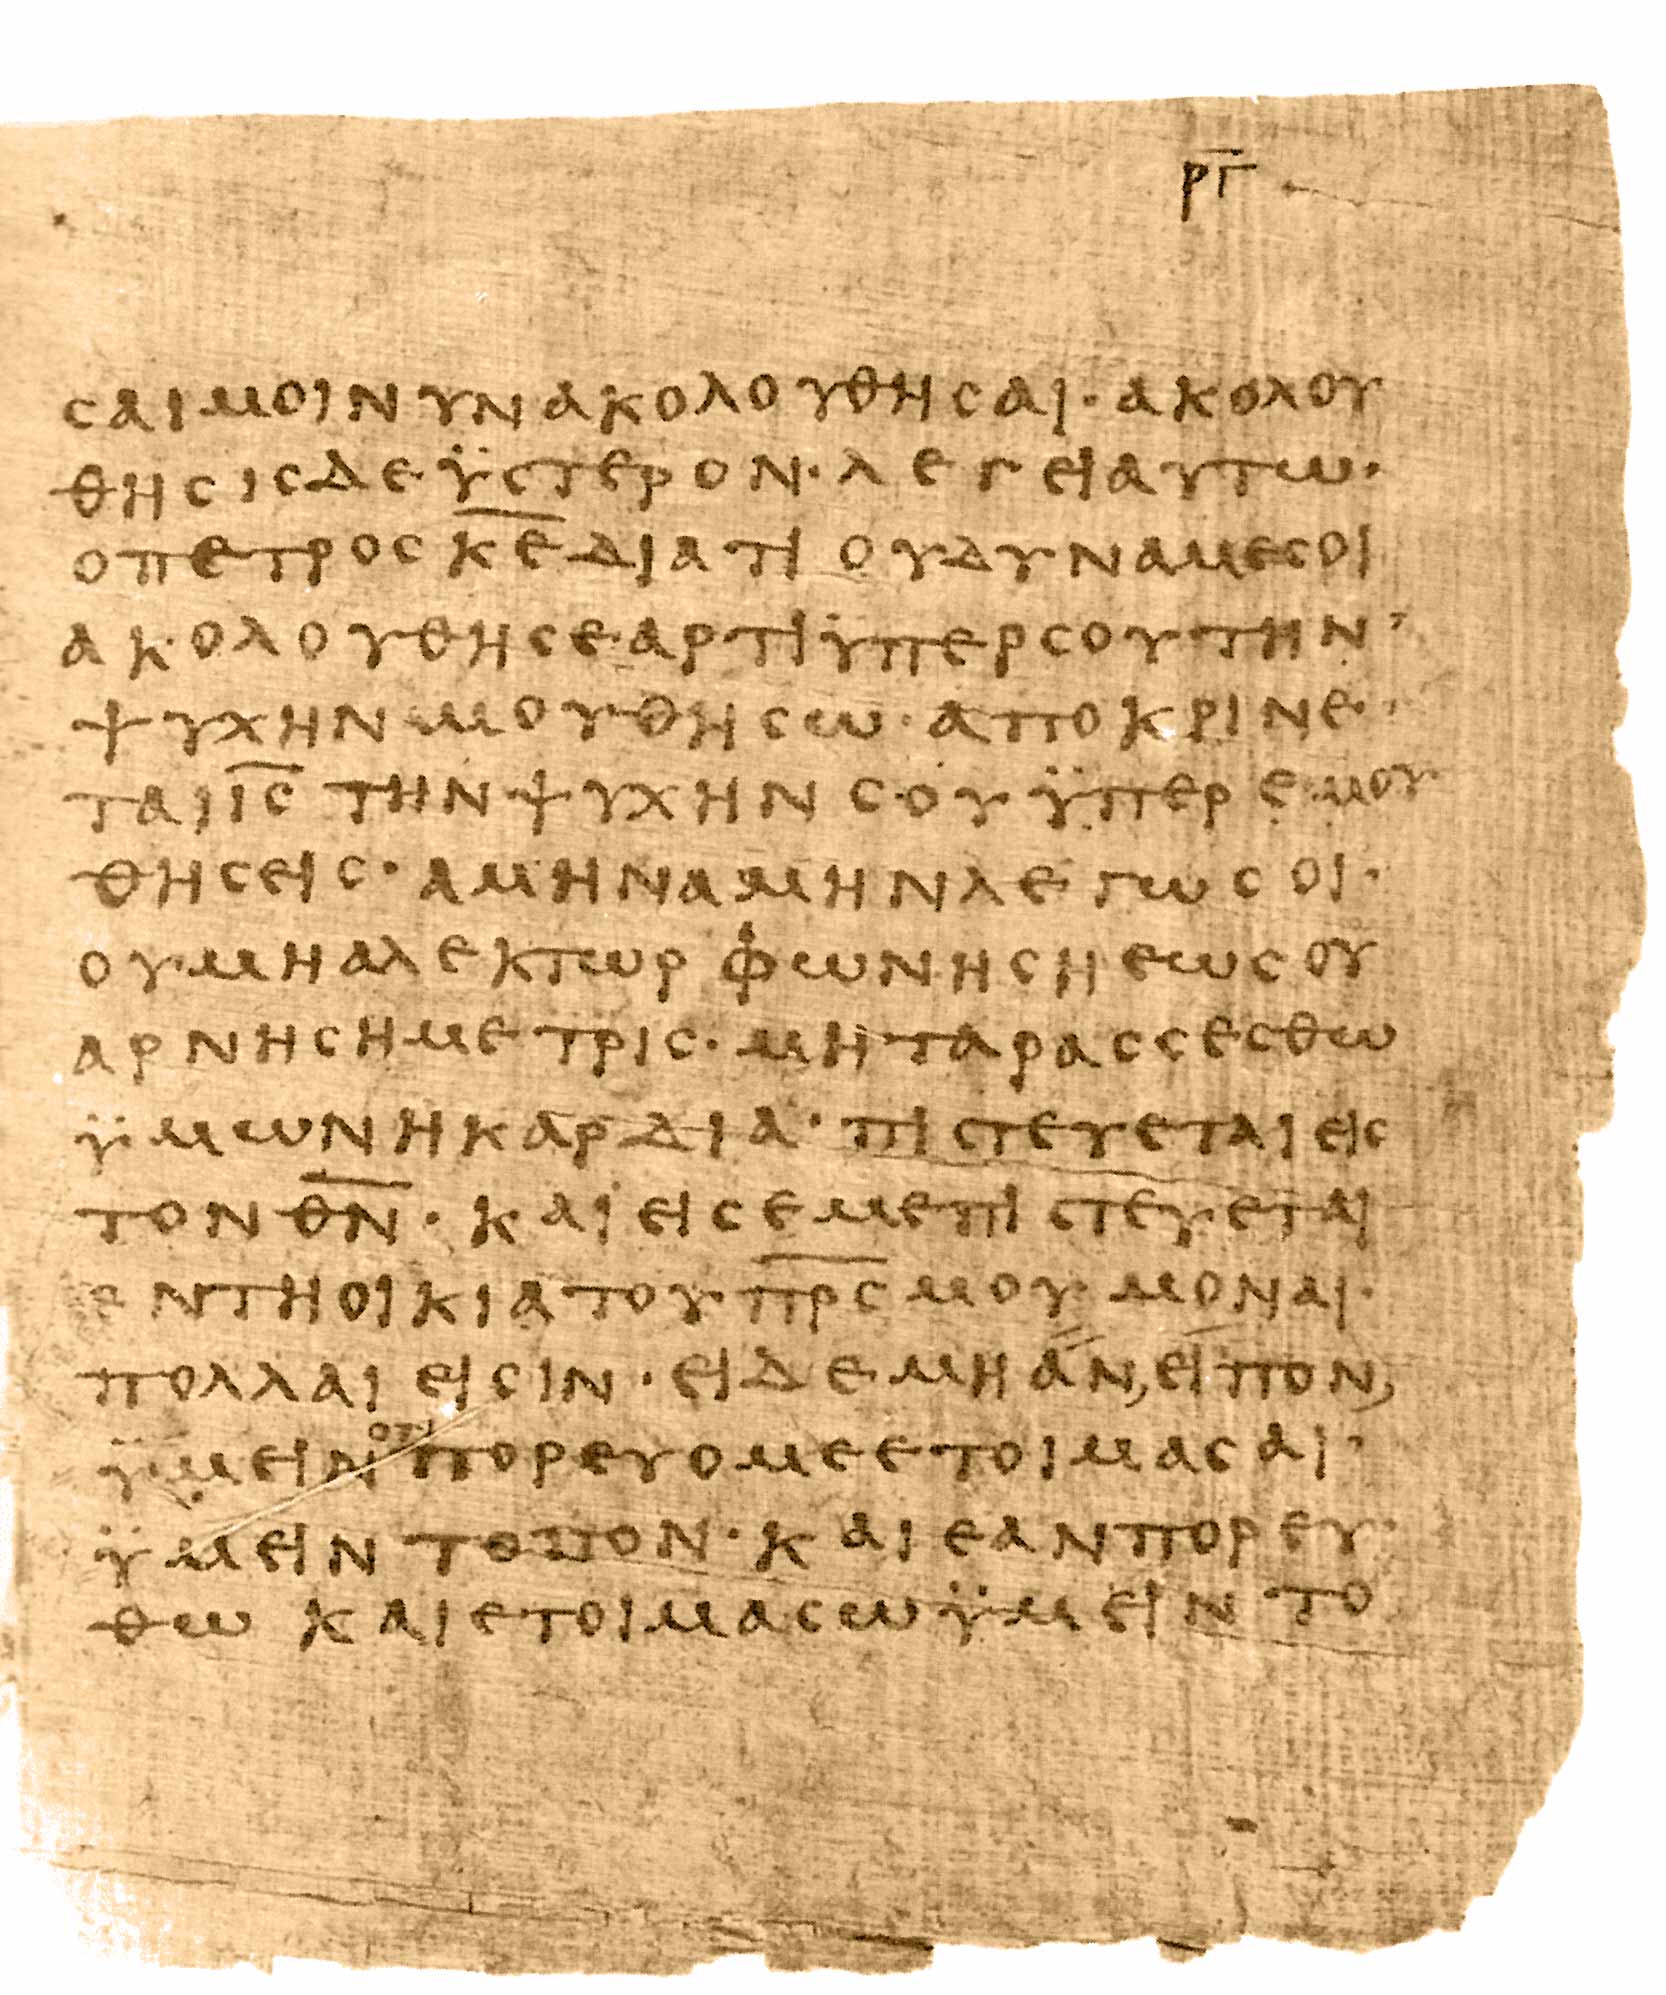 ΡΓ
ϹΑΙΜΟΙΝΥΝΑΚΟΛΟΥΘΗϹΑΙ· ΑΚΟΛΟΥ
ΘΗϹΙϹΔΕΫϹΤΕΡΟΝ· ΛΕΓΕΙΑΥΤΩ·
ΟΠΕΤΡΟϹ Κ̅Ε̅ΔΙΑΤΙ ΟΥΔΥΝΑΜΕϹΟΙ
ΑΚΟΛΟΥΘΗϹΕΑΡΤΙΫΠΕΡϹΟΥΤΗΝ
ΨΥΧΗΝΜΟΥΘΗϹΩ· ΑΠΟΚΡΙΝΕ
ΤΑΙΙ̅Ϲ̅ ΤΗΝΨΥΧΗΝϹΟΥΫΠΕΡΕΜΟΥ
ΘΗϹΕΙϹ· ΑΜΗΝΑΜΗΝΛΕΓΩϹΟΙ·
ΟΥΜΗΑΛΕΚΤΩΡ ΦΩΝΗϹΗΕΩϹΟΥ
ΑΡΝΗϹΗΜΕΤΡΙϹ· ΜΗΤΑΡΑϹϹΕϹΘΩ
ΫΜΩΝΗΚΑΡΔΙΑ· ΠΙϹΤΕΥΕΤΑΙΕΙϹ
ΤΟΝΘ̅Ν̅· ΚΑΙΕΙϹΕΜΕΠΙϹΤΕΥΕΤΑΙ
ΕΝΤΗΟΙΚΙΑΤΟΥΠ̅Ρ̅Ϲ̅ΜΟΥΜΟΝΑΙ·
ΠΟΛΛΑΙΕΙϹΙΝ· ΕΙΔΕΜΗΑΝ,ΕΙΠΟΝ,
ΫΜΕΙΝ ΟΤΙ ΠΟΡΕΥΟΜΕΕΤΟΙΜΑϹΑΙ
ΫΜΕΙΝΤΟΠΟΝ· ΚΑΙΕΑΝΠΟΡΕΥ
ΘΩ ΚΑΙΕΤΟΙΜΑϹΩΫΜΕΙΝ ΤΟ